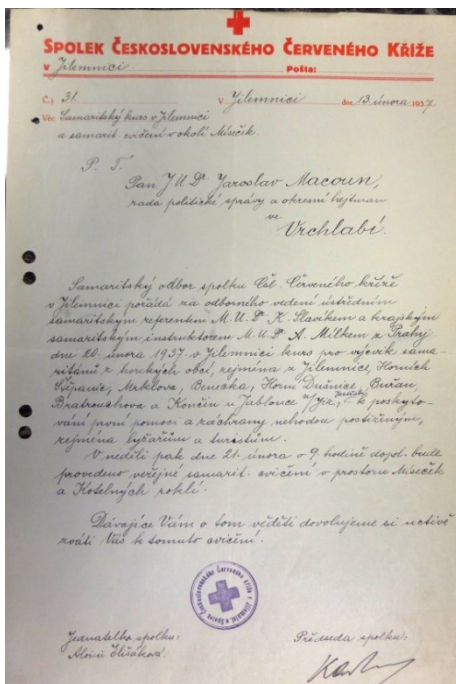 SPOLEK ČESKOSLOVENSKÉHO ČERVENÉHO KŘÍŽE
v Jilemnici Pošta:
Č.j. 31. V Jilemnici dne 13 února 1937
Věc: Samaritský kurs v Jilemnici
a samarit. cvičení v okolí Míseček.
P. T.
Pan JUDr Jaroslav Macoun,
rada politické správy a okresní hejtman
ve
Vrchlabí.
Samaritský odbor spolku Čsl. Červeného kříže
v Jilemnici pořádá za odborného vedení ústředním
samaritským referentem M.U.Dr K. Slavíkem a krajským
samaritským instruktorem M.U.Dr A. Milkem z Prahy
dne 20. února 1937 v Jilemnici kurs pro výcvik sama-
ritánů z horských obcí, zejména z Jilemnice, Horních
Štěpanic, Mrklova, Benecka, Horní Dušnice, Buřan,
Bratrouchova a Končin u Jablonce n/Jiz., k poskyto-
vání první pomoci a záchrany nehodou postiženým,
zejména lyžařům a turistům.
V neděli pak dne 21. února o 9. hodině dopol. bude
provedeno veřejné samarit. cvičení v prostoru Míseček
a Kotelných roklí.
Dávajíce Vám o tom věděti dovolujeme si uctivě
zváti Vás k tomuto cvičení.
Spolek Československého Červeného kříže v Jilemnici
Jednatelka spolku: Předseda spolku: